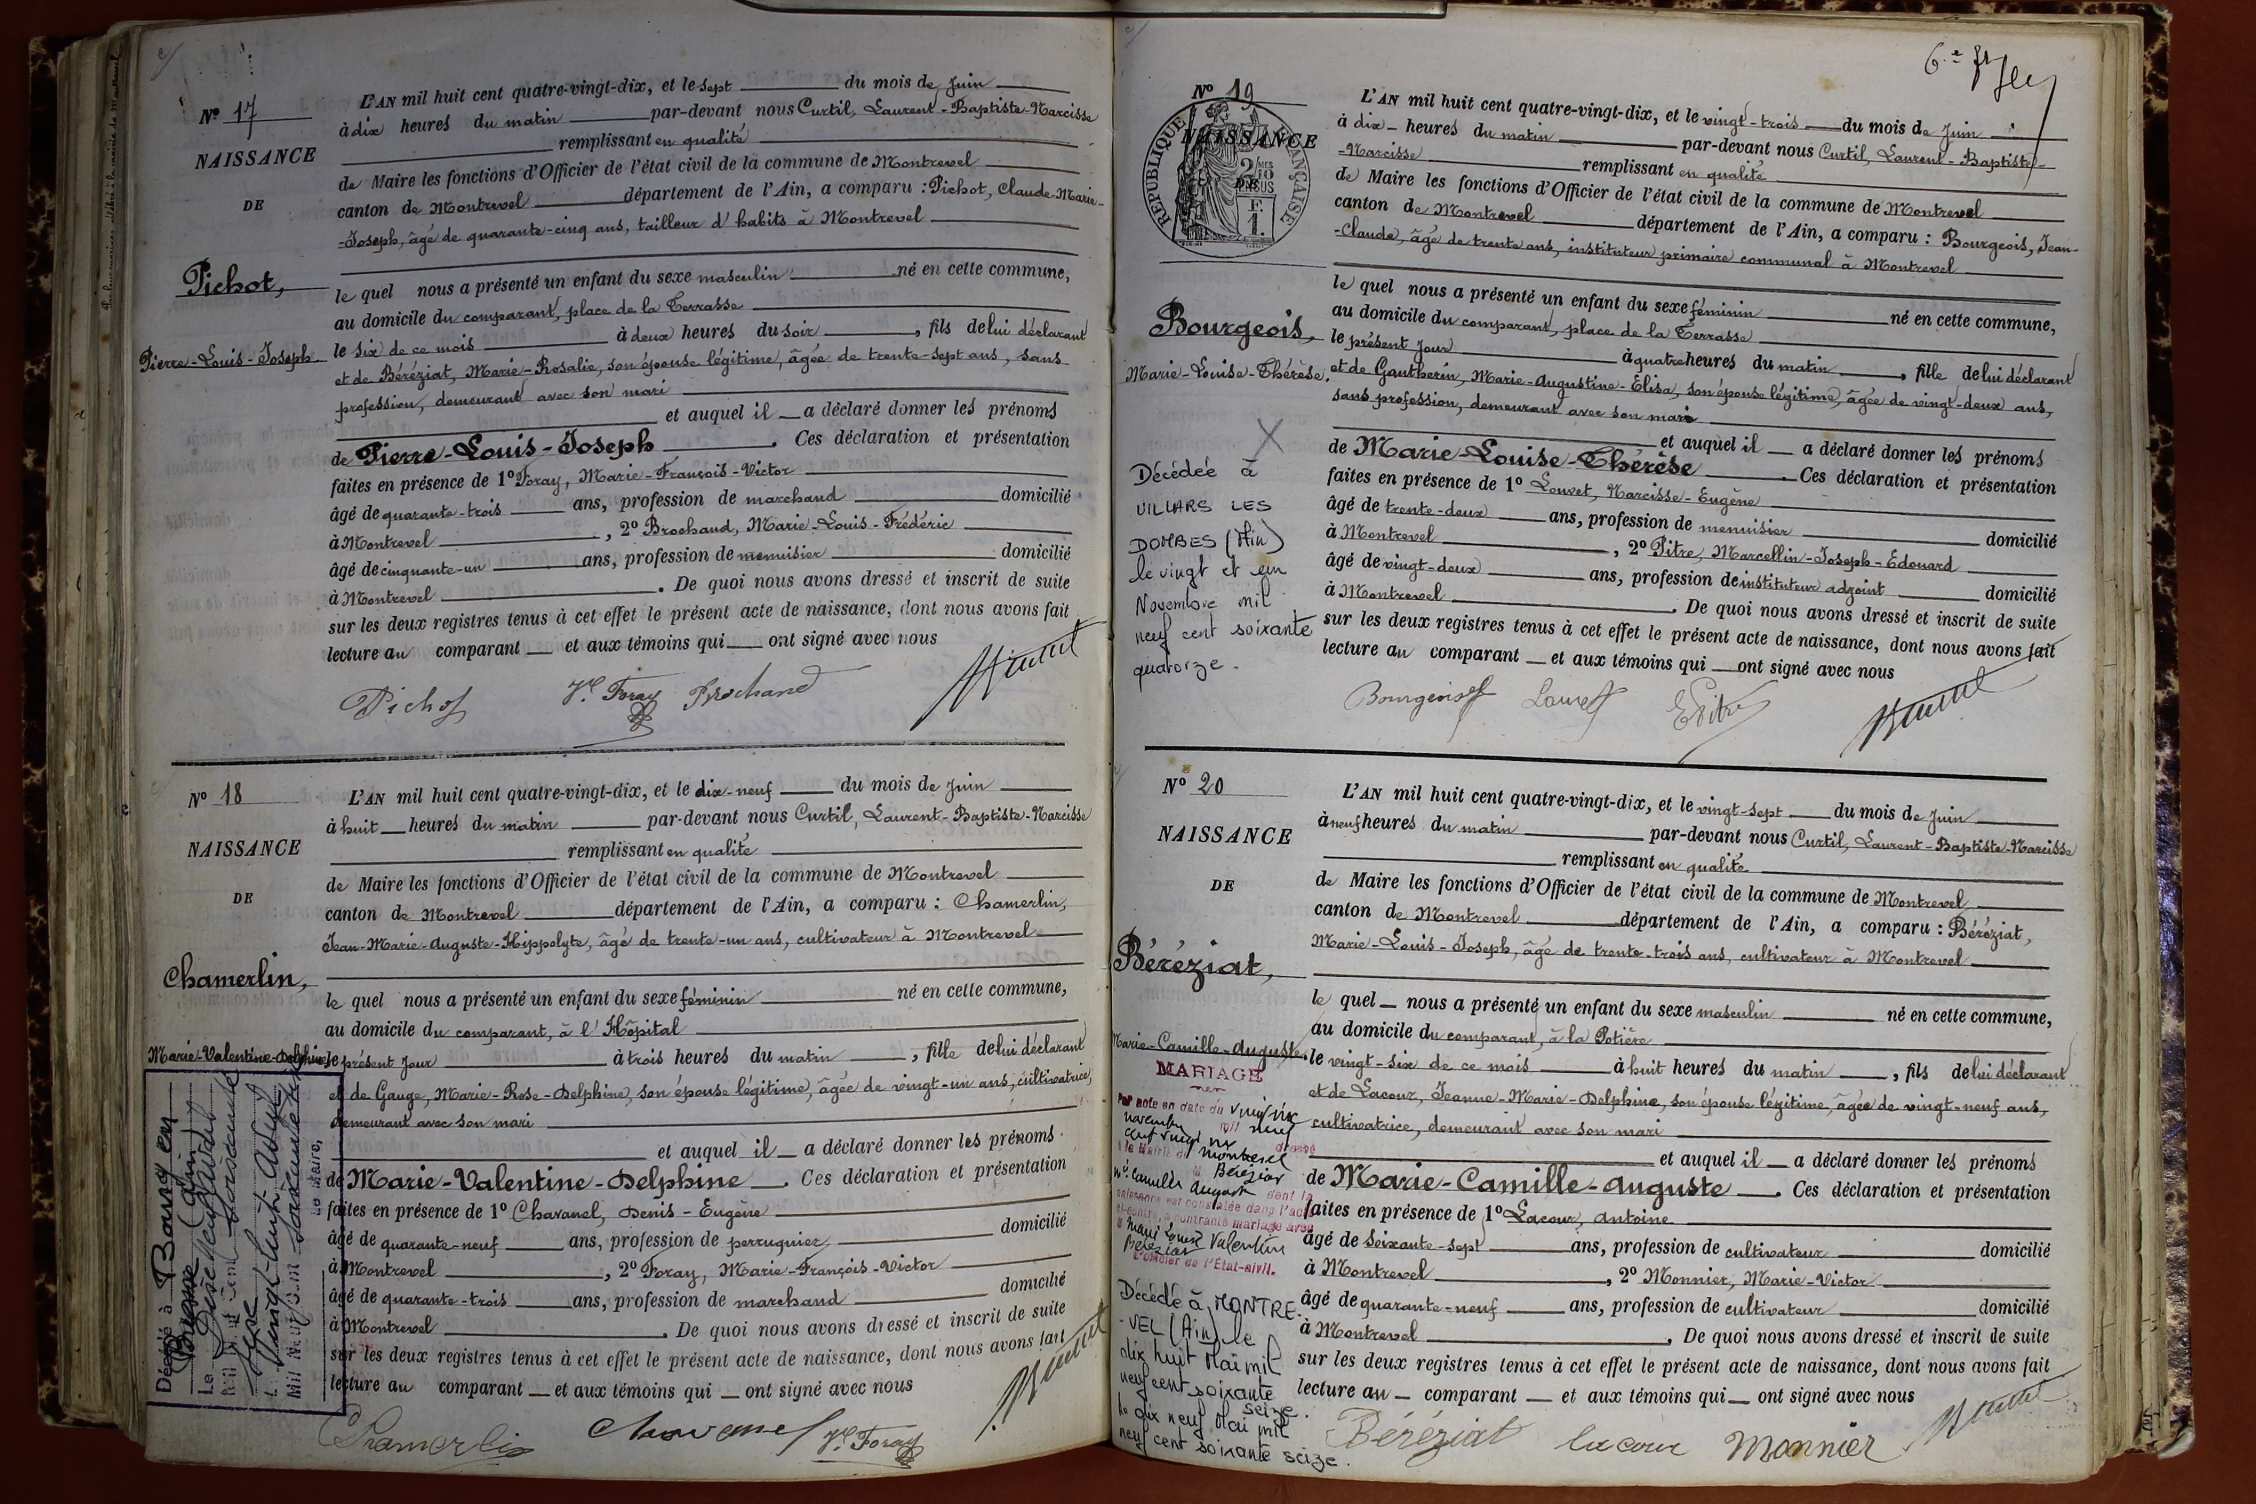 Nº 17
NAISSANCE
DE
Pichot,
Pierre-Louis-Joseph
L'AN mil huit cent quatre-vingt-dix, et le sept du mois de Juin
à dix heures du matin par-devant nous Curtil, Laurent-Baptiste-Narcisse
remplissant en qualité
de Maire les fonctions d'Officier de l'état civil de la commune de Montrevel
canton de Montrevel département de l'Ain, a comparu : Pichot, Claude-Marie-
-Joseph, âgé de quarante-cinq ans, tailleur d'habits à Montrevel
le quel nous a présenté un enfant du sexe masculin né en cette commune,
au domicile du comparant, place de la Terrasse
le six de ce mois à deux heures du soir, fils de lui déclarant
et de Béréziat, Marie-Rosalie, son épouse légitime, âgée de trente-sept ans, sans
profession, demeurant avec son mari
et auquel il a déclaré donner les prénoms
de Pierre-Louis-Joseph. Ces déclaration et présentation
faites en présence de 1º Foray, Marie-François-Victor
âgé de quarante-trois ans, profession de marchand domicilié
à Montrevel, 2º Brochand, Marie-Louis-Frédéric
âgé de cinquante-un ans, profession de menuisier domicilié
à Montrevel. De quoi nous avons dressé et inscrit de suite
sur les deux registres tenus à cet effet le présent acte de naissance, dont nous avons fait
lecture au comparant et aux témoins qui ont signé avec nous
Pichot Vr Foray Brochand
Nº 18
NAISSANCE
DE
Chamerlin,
Marie-Valentine-Delphine
L'AN mil huit cent quatre-vingt-dix, et le dix-neuf du mois de Juin
à huit heures du matin par-devant nous Curtil, Laurent-Baptiste-Narcisse
remplissant en qualité
de Maire les fonctions d'Officier de l'état civil de la commune de Montrevel
canton de Montrevel département de l'Ain, a comparu : Chamerlin,
Jean-Marie-Auguste-Hippolyte, âgé de trente-un ans, cultivateur à Montrevel
le quel nous a présenté un enfant du sexe féminin né en cette commune,
au domicile du comparant, à l'Hôpital
le présent jour à trois heures du matin, fille de lui déclarant
et de Gauge, Marie-Rose-Delphine, son épouse légitime, âgée de vingt-un ans, cultivatrice,
demeurant avec son mari
et auquel il a déclaré donner les prénoms
de Marie-Valentine-Delphine. Ces déclaration et présentation
faites en présence de 1º Chavanel, Denis-Eugène
âgé de quarante-neuf ans, profession de perruquier domicilié
à Montrevel, 2º Foray, Marie-François-Victor
âgé de quarante-trois ans, profession de marchand domicilié
à Montrevel. De quoi nous avons dressé et inscrit de suite
sur les deux registres tenus à cet effet le présent acte de naissance, dont nous avons fait
lecture au comparant et aux témoins qui ont signé avec nous
Décédé à Bourg en
Bresse (Ain)
Le
Le Maire,
Chamerlin Chavanel Vr Foray
Nº 19
NAISSANCE
DE
RÉPUBLIQUE FRANÇAISE
Bourgeois,
Marie-Louise-Thérèse.
Décédée à
VILLARS LES
DOMBES (Ain)
le vingt et un
Novembre mil
neuf cent soixante
quatorze.
L'AN mil huit cent quatre-vingt-dix, et le vingt-trois du mois de Juin
à dix heures du matin par-devant nous Curtil, Laurent-Baptiste-
-Narcisse remplissant en qualité
de Maire les fonctions d'Officier de l'état civil de la commune de Montrevel
canton de Montrevel département de l'Ain, a comparu : Bourgeois, Jean-
-Claude, âgé de trente ans, instituteur primaire communal à Montrevel
le quel nous a présenté un enfant du sexe féminin né en cette commune,
au domicile du comparant, place de la Terrasse
le présent jour à quatre heures du matin, fille de lui déclarant
et de Gautherin, Marie-Augustine-Elisa, son épouse légitime, âgée de vingt-deux ans,
sans profession, demeurant avec son mari
et auquel il a déclaré donner les prénoms
de Marie-Louise-Thérèse. Ces déclaration et présentation
faites en présence de 1º Louvet, Narcisse-Eugène
âgé de trente-deux ans, profession de menuisier domicilié
à Montrevel, 2º Pitre, Marcellin-Joseph-Edouard
âgé de vingt-deux ans, profession de instituteur adjoint domicilié
à Montrevel. De quoi nous avons dressé et inscrit de suite
sur les deux registres tenus à cet effet le présent acte de naissance, dont nous avons fait
lecture au comparant et aux témoins qui ont signé avec nous
Bourgeois Louvet EPitre
Nº 20
NAISSANCE
DE
Béréziat,
Marie-Camille-Auguste.
MARIAGE
Montrevel
Béréziat
Mie Camille August
dont la
naissance est constatée dans l'acte
ci-contre, a contracté mariage avec
Marie Louise Valentine
Béréziat
L'Officier de l'État-civil.
Décédé à MONTRE-
-VEL (Ain) le
dix huit Mai mil
neuf cent soixante
seize.
Le dix neuf Mai mil
neuf cent soixante seize.
L'AN mil huit cent quatre-vingt-dix, et le vingt-sept du mois de Juin
à neuf heures du matin par-devant nous Curtil, Laurent-Baptiste-Narcisse
remplissant en qualité
de Maire les fonctions d'Officier de l'état civil de la commune de Montrevel
canton de Montrevel département de l'Ain, a comparu : Béréziat,
Marie-Louis-Joseph, âgé de trente-trois ans, cultivateur à Montrevel
le quel nous a présenté un enfant du sexe masculin né en cette commune,
au domicile du comparant, à la Potière
le vingt-six de ce mois à huit heures du matin, fils de lui déclarant
et de Lacour, Jeanne-Marie-Delphine, son épouse légitime, âgée de vingt-neuf ans,
cultivatrice, demeurant avec son mari
et auquel il a déclaré donner les prénoms
de Marie-Camille-Auguste. Ces déclaration et présentation
faites en présence de 1º Lacour, Antoine
âgé de soixante-sept ans, profession de cultivateur domicilié
à Montrevel, 2º Monnier, Marie-Victor
âgé de quarante-neuf ans, profession de cultivateur domicilié
à Montrevel. De quoi nous avons dressé et inscrit de suite
sur les deux registres tenus à cet effet le présent acte de naissance, dont nous avons fait
lecture au comparant et aux témoins qui ont signé avec nous
Béréziat lacour Monnier